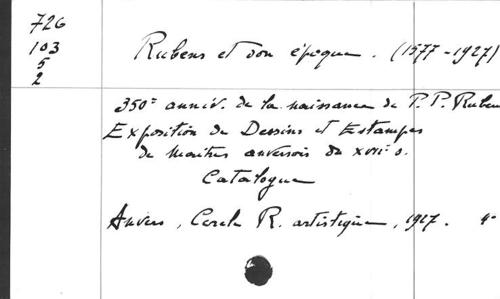 726
103
5
2
Rubens et son époque. (1577-1927)
350e anniv. de la naissance de P. P. Rubens
Exposition de Dessins et Estampes
de maîtres anversois du XVIIe s.
Catalogue
Anvers, Cercle R. artistique, 1927. 4°